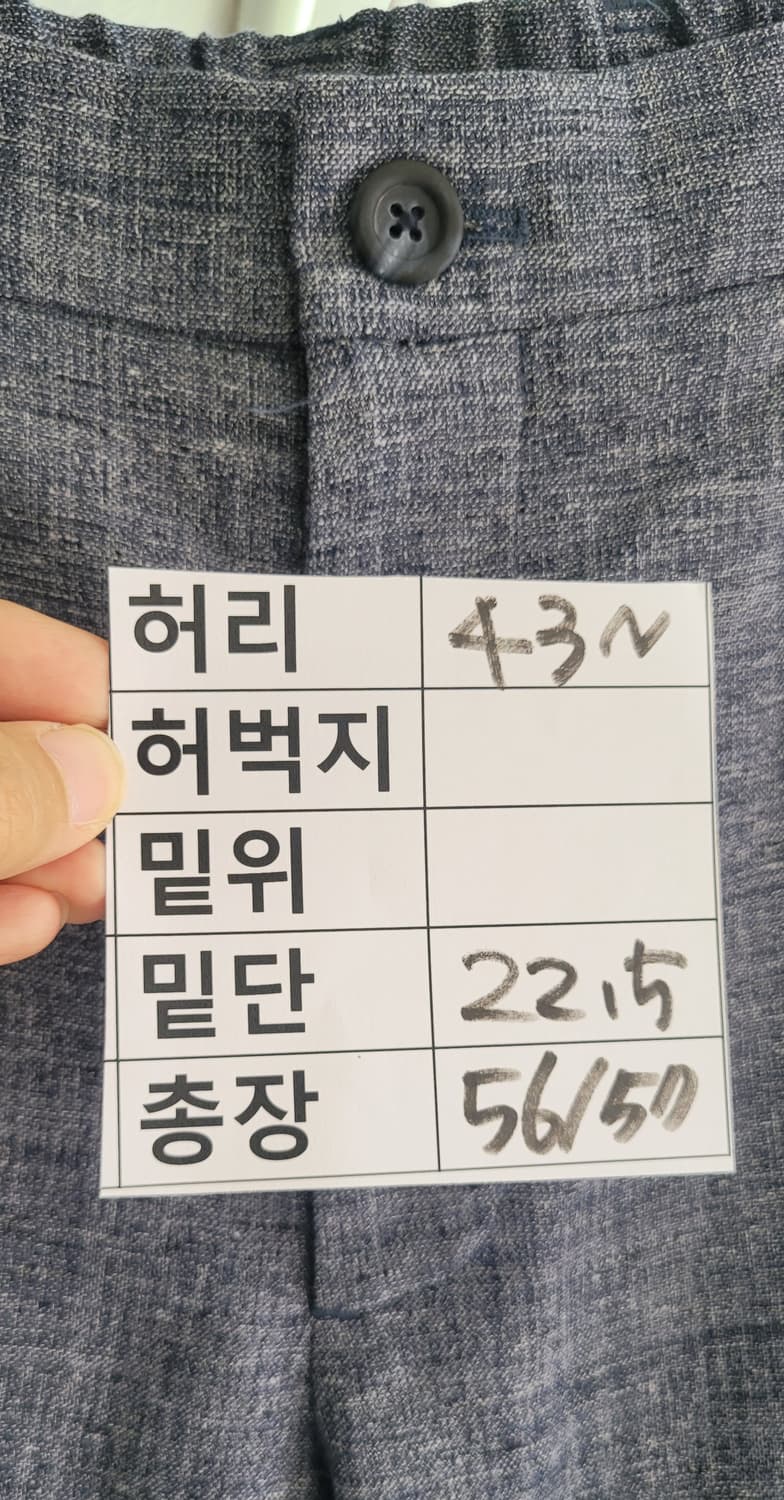 허리 43~
허벅지
밑위
밑단 22.5
총장 56/50